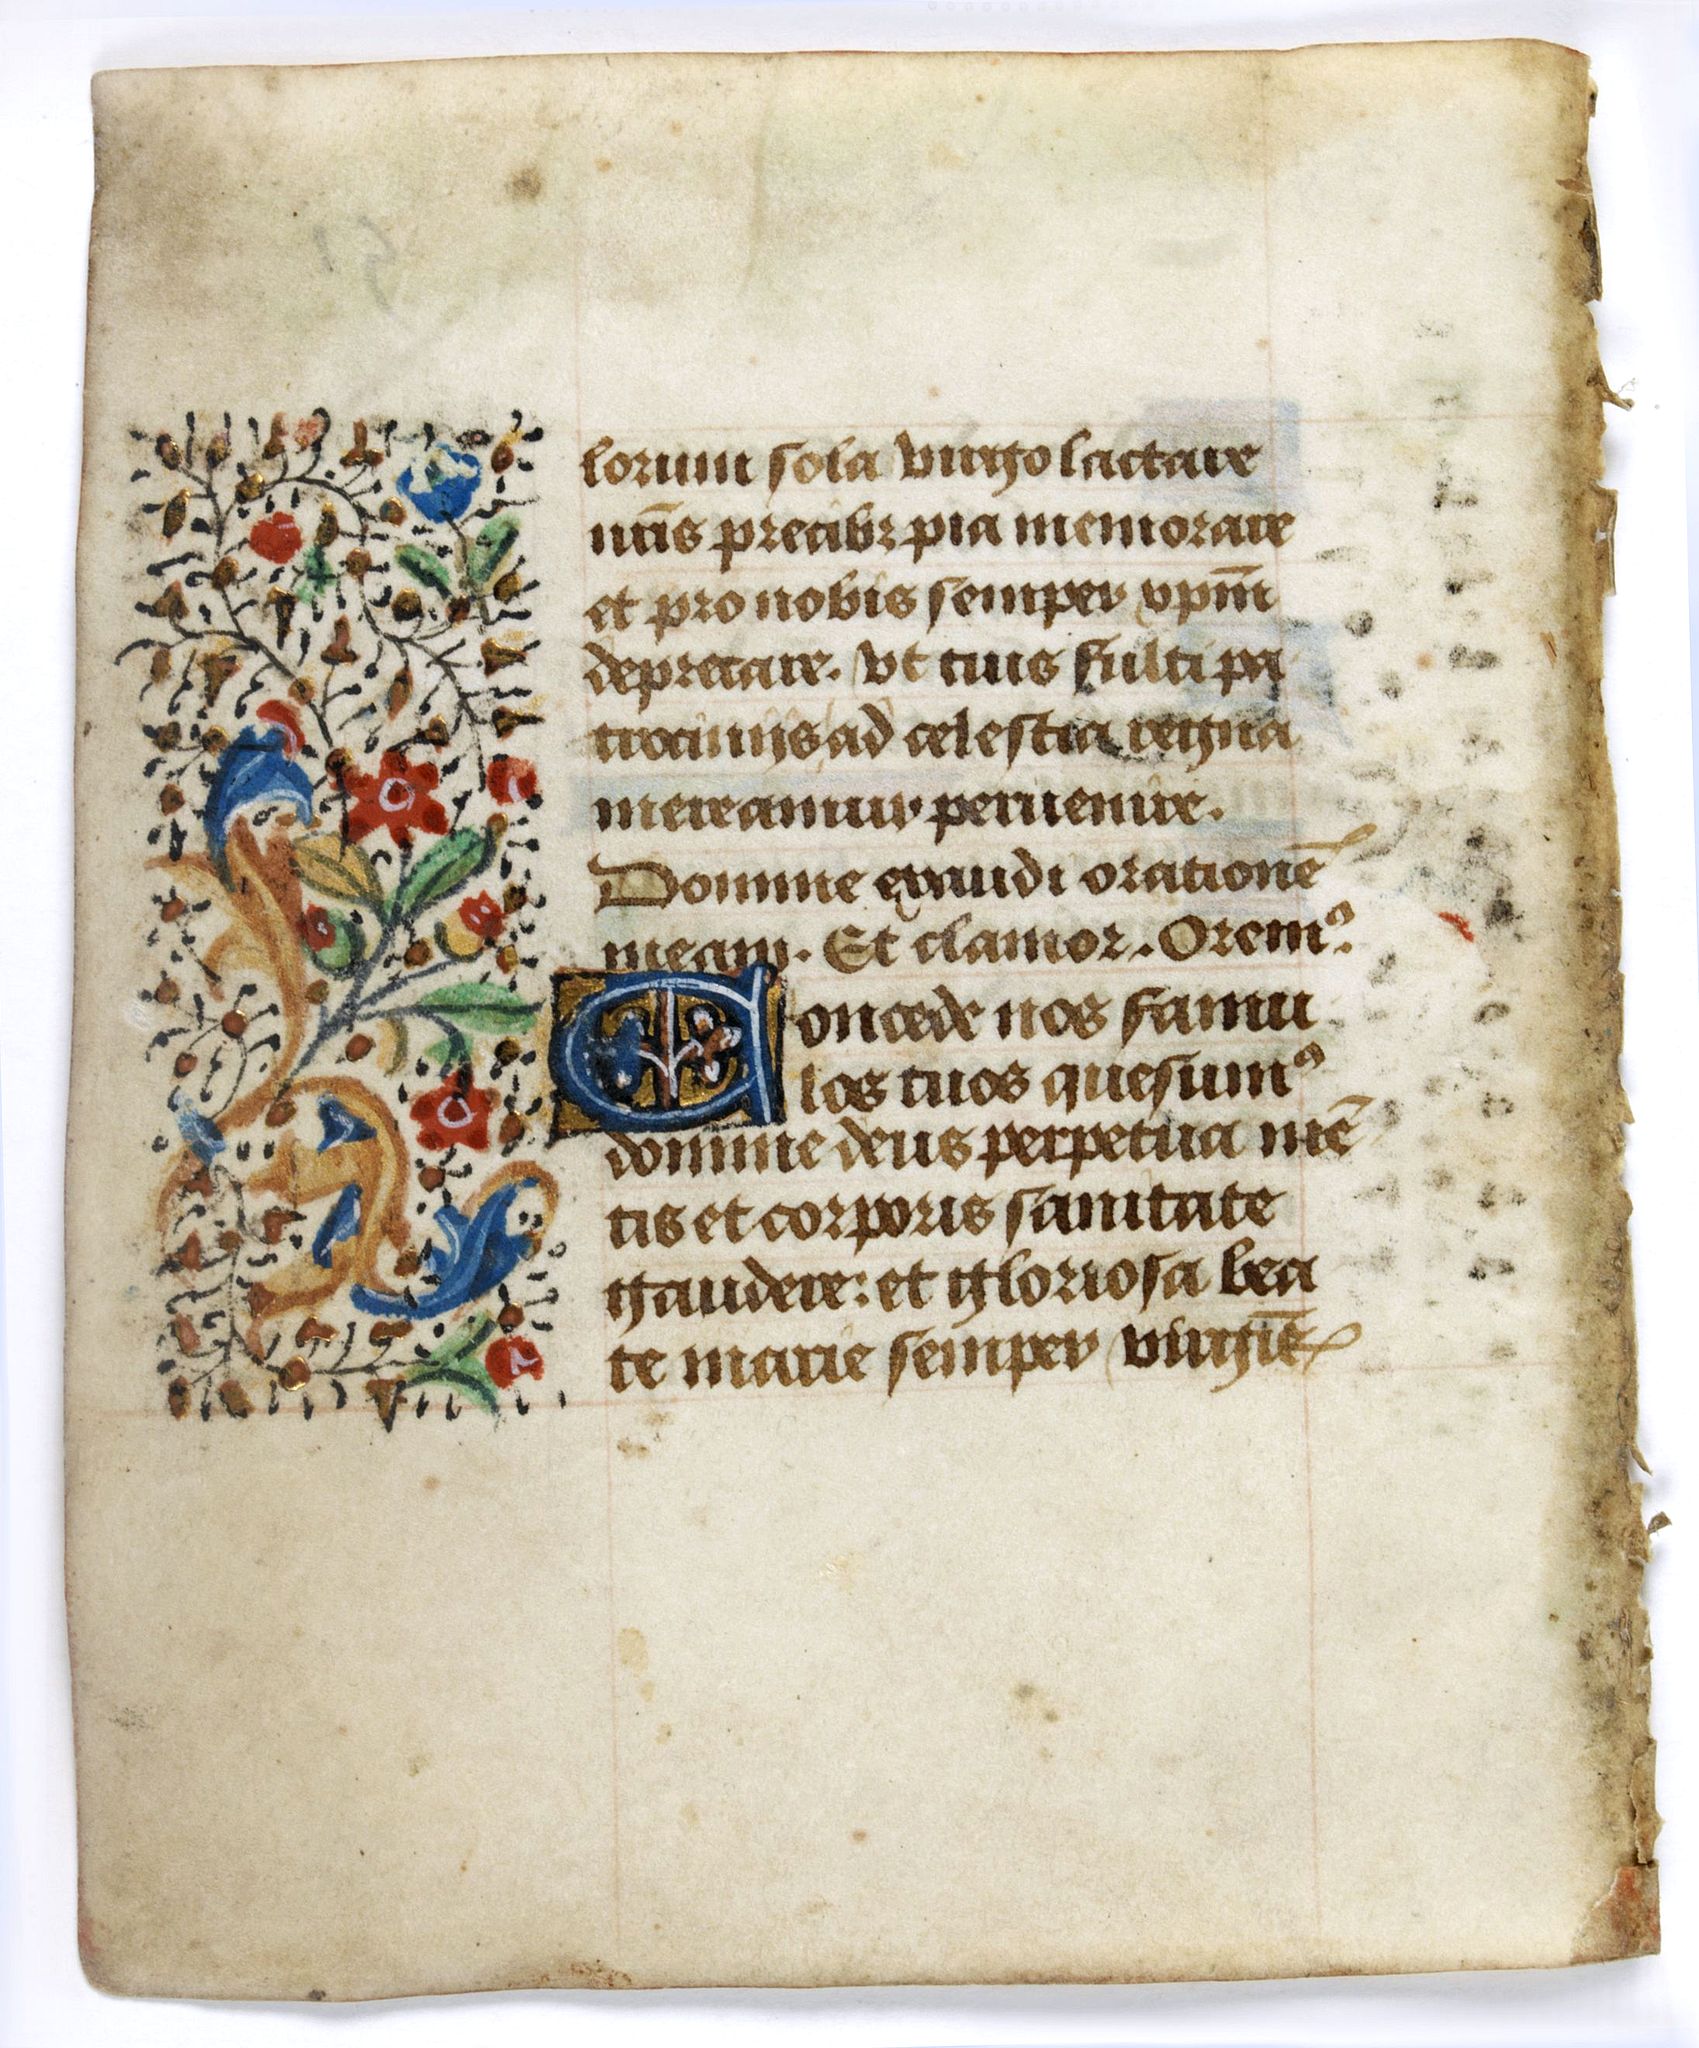 lorum sola virgo lactare
nr̄is precibꝫ pia memorare
et pro nobis semper xpm̄
deprecare. Vt tuis fulti pa
trociniis ad celestia regna
mereamur peruenire.
Domine exaudi orationē
meam. Et clamor. Oremꝰ.
Concede nos famu
los tuos quesumꝰ
domine deus perpetua mē
tis et corporis sanitate
gaudere: et gloriosa bea
te marie semper virgīs